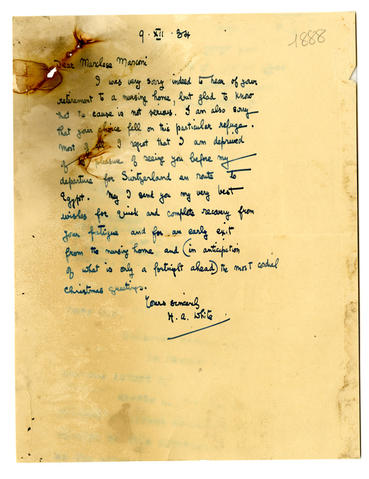 9. XII. 34
1888
Dear Marchese Marconi
I was very sorry indeed to hear of your
retirement to a nursing home, but glad to know
that the cause is not serious. I am also sorry
that your choice fell on this particular refuge.
Most of all I regret that I am deprived
of the pleasure of seeing you before my
departure for Switzerland en route to
Egypt. May I send you my very best
wishes for quick and complete recovery from
your fatigue and for an early exit
from the nursing home, and (in anticipation
of what is only a fortnight ahead) the most cordial
Christmas greetings.
Yours sincerely
H. A. White